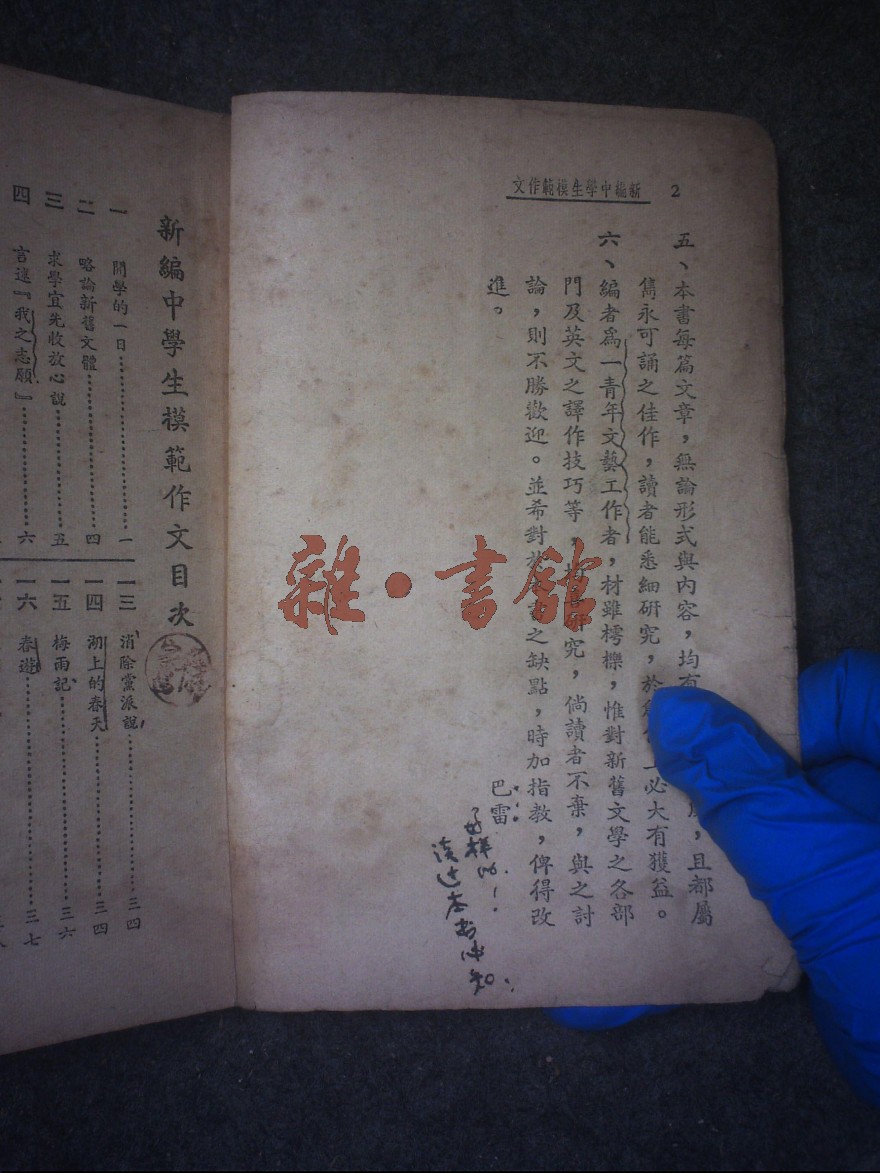 新編中學生模範作文 2
五、本書每篇文章，無論形式與內容，均有，且都屬
雋永可誦之佳作，讀者能悉細研究，於必大有獲益。
六、編者爲一青年文藝工作者，材雖樗櫟，惟對新舊文學之各部
門及英文之譯作技巧等，研究，倘讀者不棄，與之討
論，則不勝歡迎。並希對於書之缺點，時加指教，俾得改
進。
巴雷
好样的！
读过本书便知：
雜·書館
新編中學生模範作文目次
一 開學的一日 一
二 略論新舊文體 四
三 求學宜先收放心說 五
四 言達『我之志願』 六
一三 消除黨派說 三四
一四 湖上的春天 三四
一五 梅雨記 三六
一六 春遊 三七